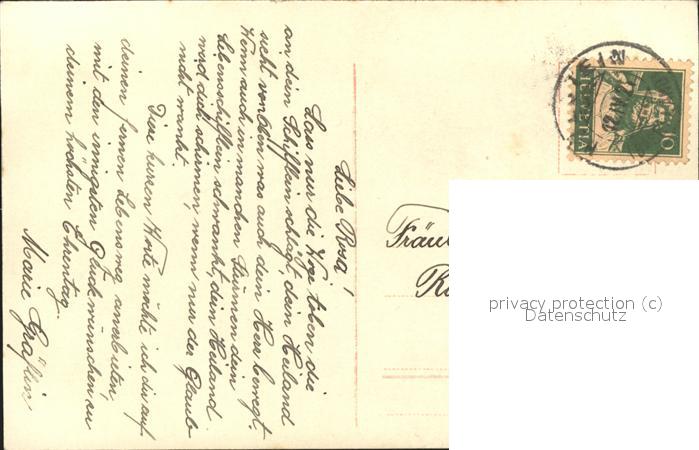 Liebe Rosa!
Lass nur die Wogen toben, die
an dein Schifflein schlägt, dein Heiland
sieht von oben was auch dein Herz bewegt.
Wenn auch in manchen Stürmen dein
Lebensschifflein schwankt, dein Heiland
wird dich schirmen, wenn nur der Glaube
nicht wankt.
Diese kurzen Worte möchte ich dir auf
deinen fernen Lebensweg
mit den innigsten Glückwünschen zu
deinem höchsten Ehrentag.
Marie
Fräul
HELVETIA
10
privacy protection (c)
Datenschutz